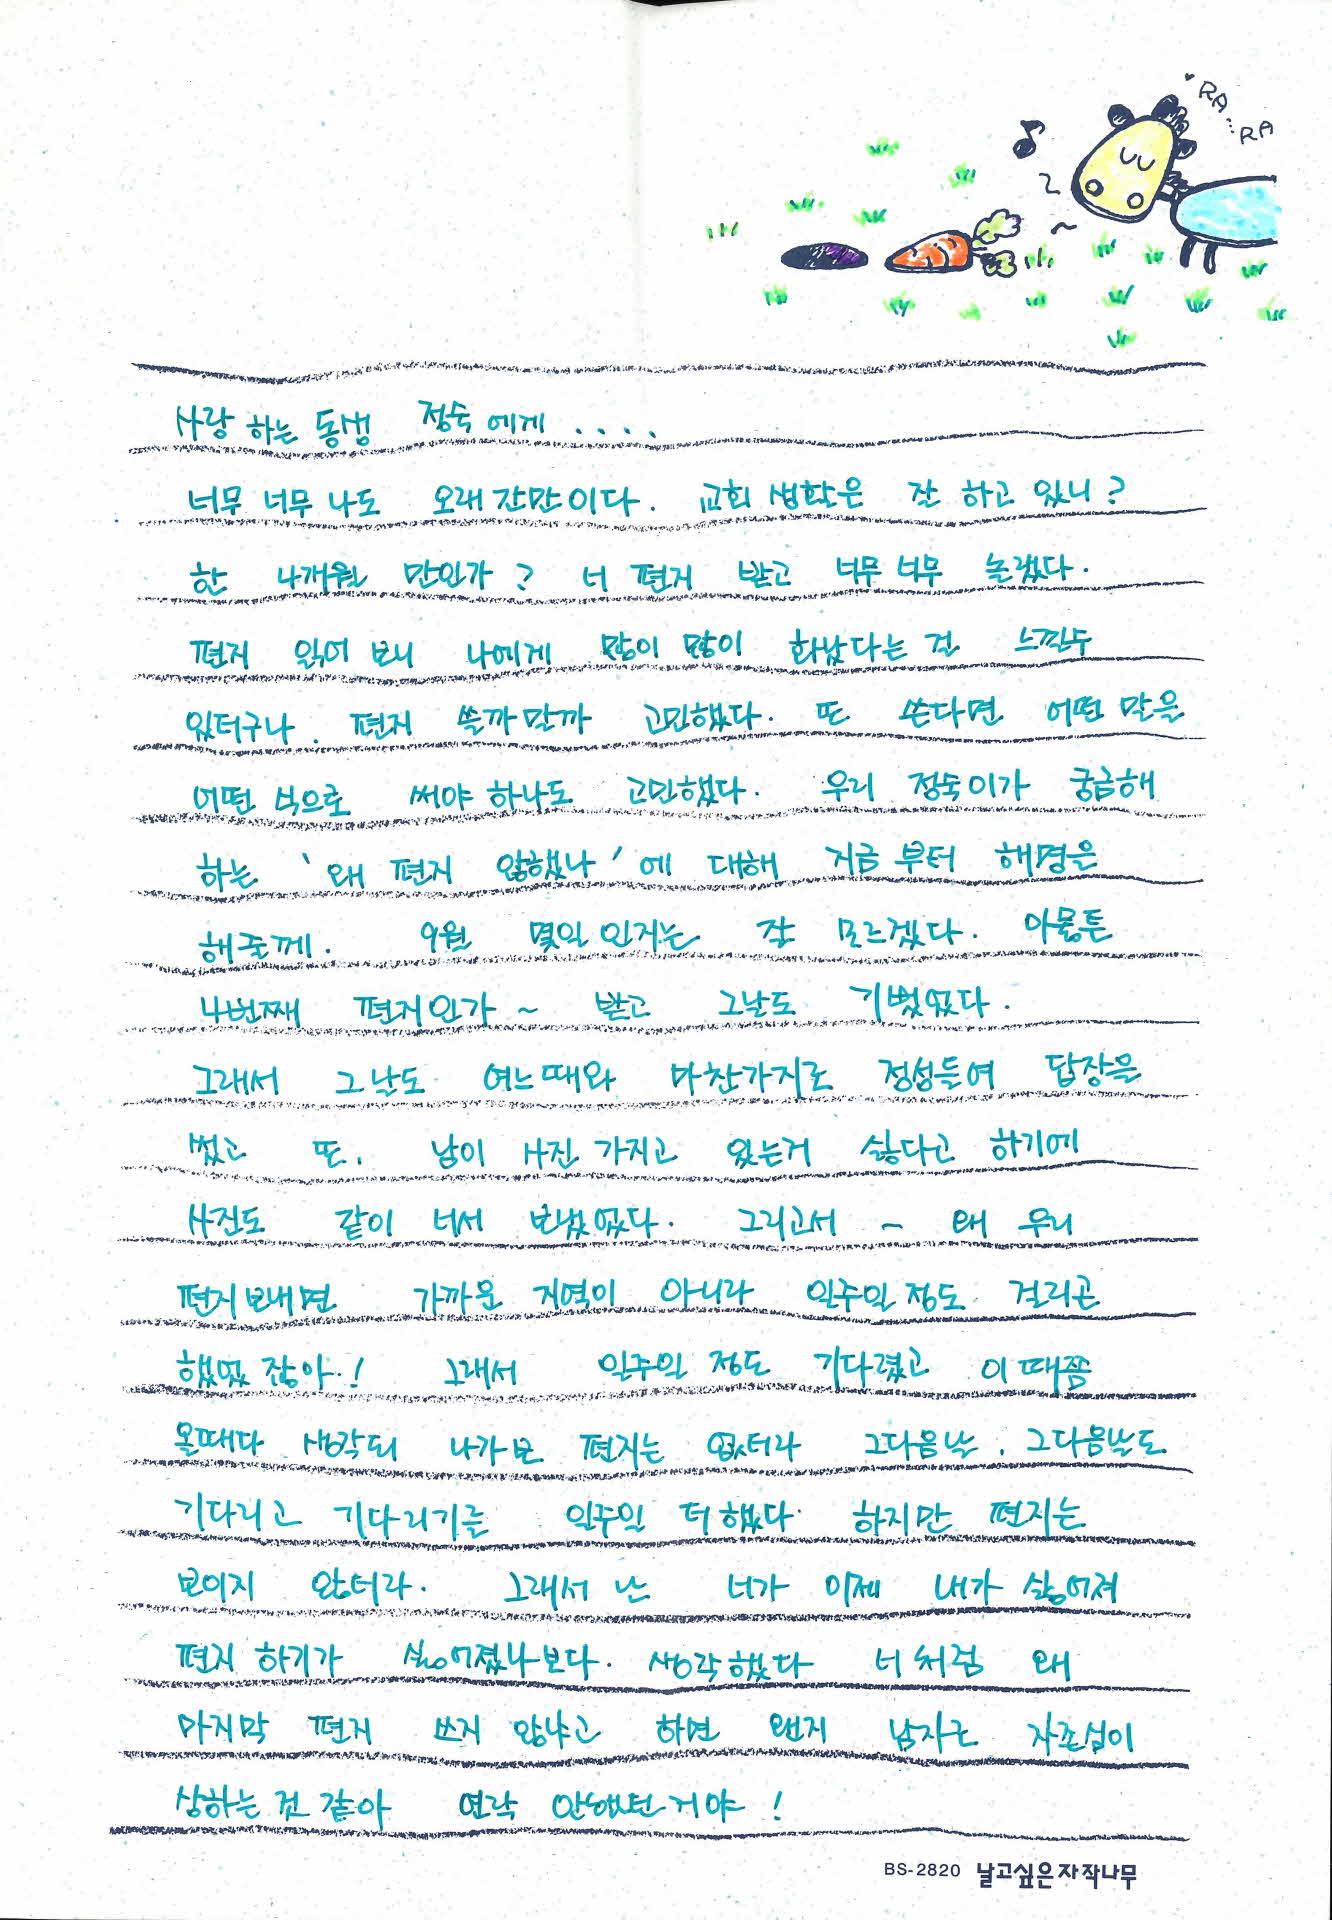 RA
RA
사랑 하는 동생 정숙 에게 . . . .
너무 너무 나도 오래간만이다. 교회 생활은 잘 하고 있니?
한 4개월 만인가? 너 편지 받고 너무 너무 놀랬다.
편지 읽어 보니 나에게 많이 많이 화났다는 걸 느낄수
있더구나. 편지 쓸까 말까 고민했다. 또 쓴다면 어떤 말을
어떤 식으로 써야 하나도 고민했다. 우리 정숙이가 궁금해
하는 '왜 편지 않했나'에 대해 지금 부터 해명은
해줄께. 9월 몇일 인지는 잘 모르겠다. 아뭏튼
4번째 편지인가~ 받고 그날도 기뻤었다.
그래서 그날도 여느때와 마찬가지로 정성들여 답장을
썼고 또, 남이 사진 가지고 있는거 싫다고 하기에
사진도 같이 너서 보냈었다. 그리고서 ~ 왜 우리
편지보내면 가까운 지역이 아니라 일주일 정도 걸리곤
했었잖아.! 그래서 일주일 정도 기다렸고 이때쯤
올때다 생각되 나가보 편지는 없더라 그다음날, 그다음날도
기다리고 기다리기를 일주일 더했다. 하지만 편지는
보이지 않터라. 그래서 난 너가 이제 내가 싫어져
편지 하기가 싫어졌나보다. 생각했다 너처럼 왜
마지막 편지 쓰지 않냐고 하면 왠지 남자는 자존심이
상하는 것 같아 연락 안했던거야!
BS-2820 날고싶은자작나무